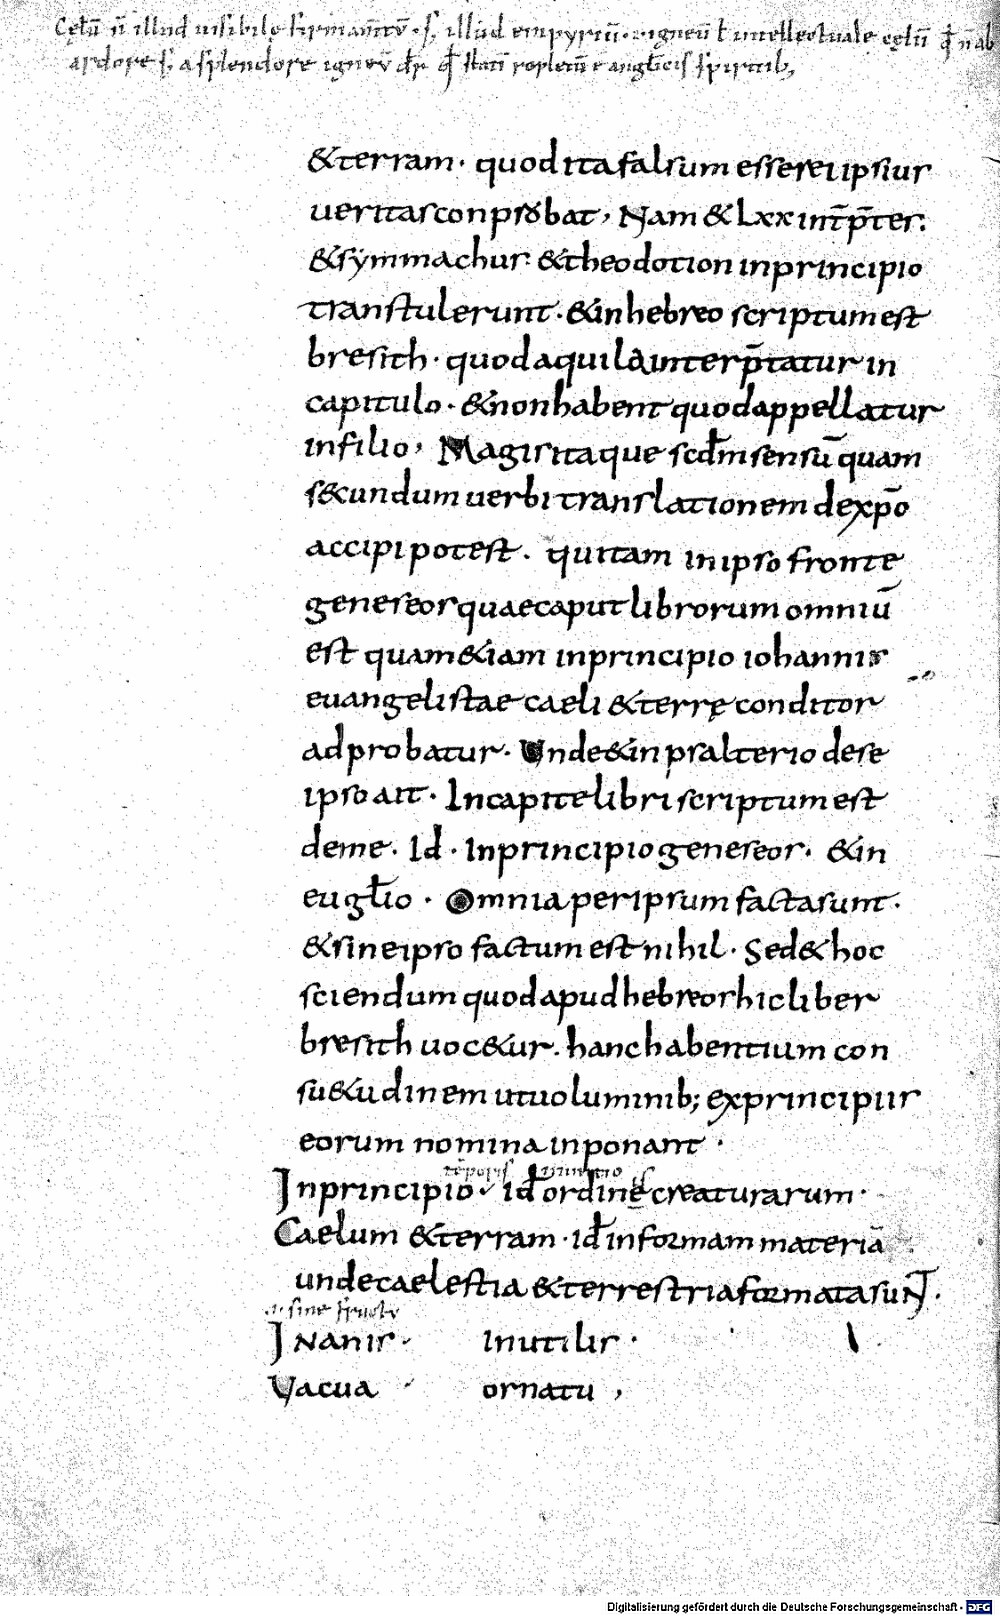 Cęlū n̄ illud uisibile firmam̄tū · s; illud empyriū · i· igneū ł intellectuale cęlū q̄ n̄ ab
ardore s; a splendore igneū dr̄ q̄ stati repletū ē anglicis spiritib;
& terram · quod ita falsum esse rei ipsius
ueritas conprobat, Nam & lxx int̄p̄tes.
& symmachus & theodotion in principio
transtulerunt · & in hebreo scriptum est
bresith · quod aquila interp̄tatur in
capitulo · & non habent quod appellatur
in filio, Magis itaque scd̄m sensū quam
s&undum uerbi translationem de xp̄o
accipi potest . qui tam in ipso fronte
geneseos quae caput librorum omniū
est quam &iam in principio iohannis
euangelistae caeli & terrę conditor
adprobatur · Unde & in psalterio de se
ipso ait · In capite libri scriptum est
de me · Id · In principio geneseos · & in
eugłio · Omnia per ipsum facta sunt ·
& sine ipso factum est nihil · Sed & hoc
sciendum quod apud hebreos hic liber
bresith uoc&ur . hanc habentium con
su&udinem ut uoluminib; ex principiis
eorum nomina inponant ·
tēporis
In principio · id̄ ordine creaturarum ·
Caelum & terram · id̄ informam materiā
unde caelestia & terrestria formata sunt ·
·i· sine fructu
Inanis · Inutilis ·
Vacua · ornatu ,
Digitalisierung gefördert durch die Deutsche Forschungsgemeinschaft - DFG